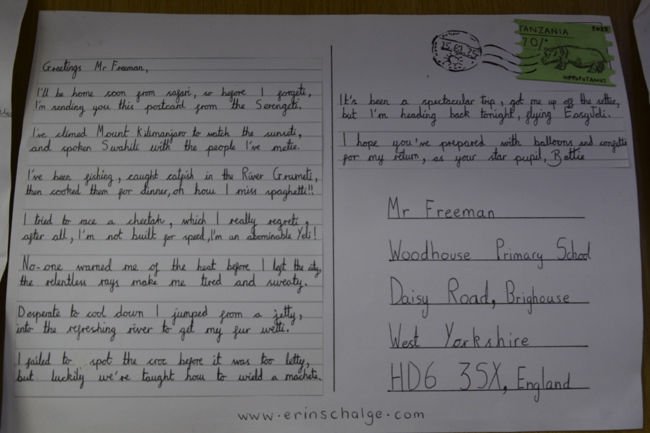 Greetings Mr Freeman,
I'll be home soon from safari, so before I forgeti,
I'm sending you this postcard from the Serengeti.
I've climed Mount Kilimanjaro to watch the sunseti,
and spoken Swahili with the people I've metie.
I've been fishing, caught catfish in the River Grumeti,
then cooked them for dinner, oh how I miss spaghetti!!
I tried to race a cheetah, which I really regreti,
after all, I'm not built for speed, I'm an abominable Yeti!
No-one warned me of the heat before I left the city,
the relentless rays make me tired and sweaty.
Desperate to cool down I jumped from a jetty,
into the refreshing river to get my fur wetti.
I failed to spot the croc before it was too letty,
but luckily we're taught how to wield a macheté.
TANZANIA
70/-
HIPPOPOTAMUS
It's been a spectacular trip, got me up off the settee,
but I'm heading back tonight, flying EasyJeti.
I hope you've prepared with balloons and confetti
for my return, as your star pupil, Bettie
Mr Freeman
Woodhouse Primary School
Daisy Road, Brighouse
West Yorkshire
HD6 3SX, England
www.erinschalge.com